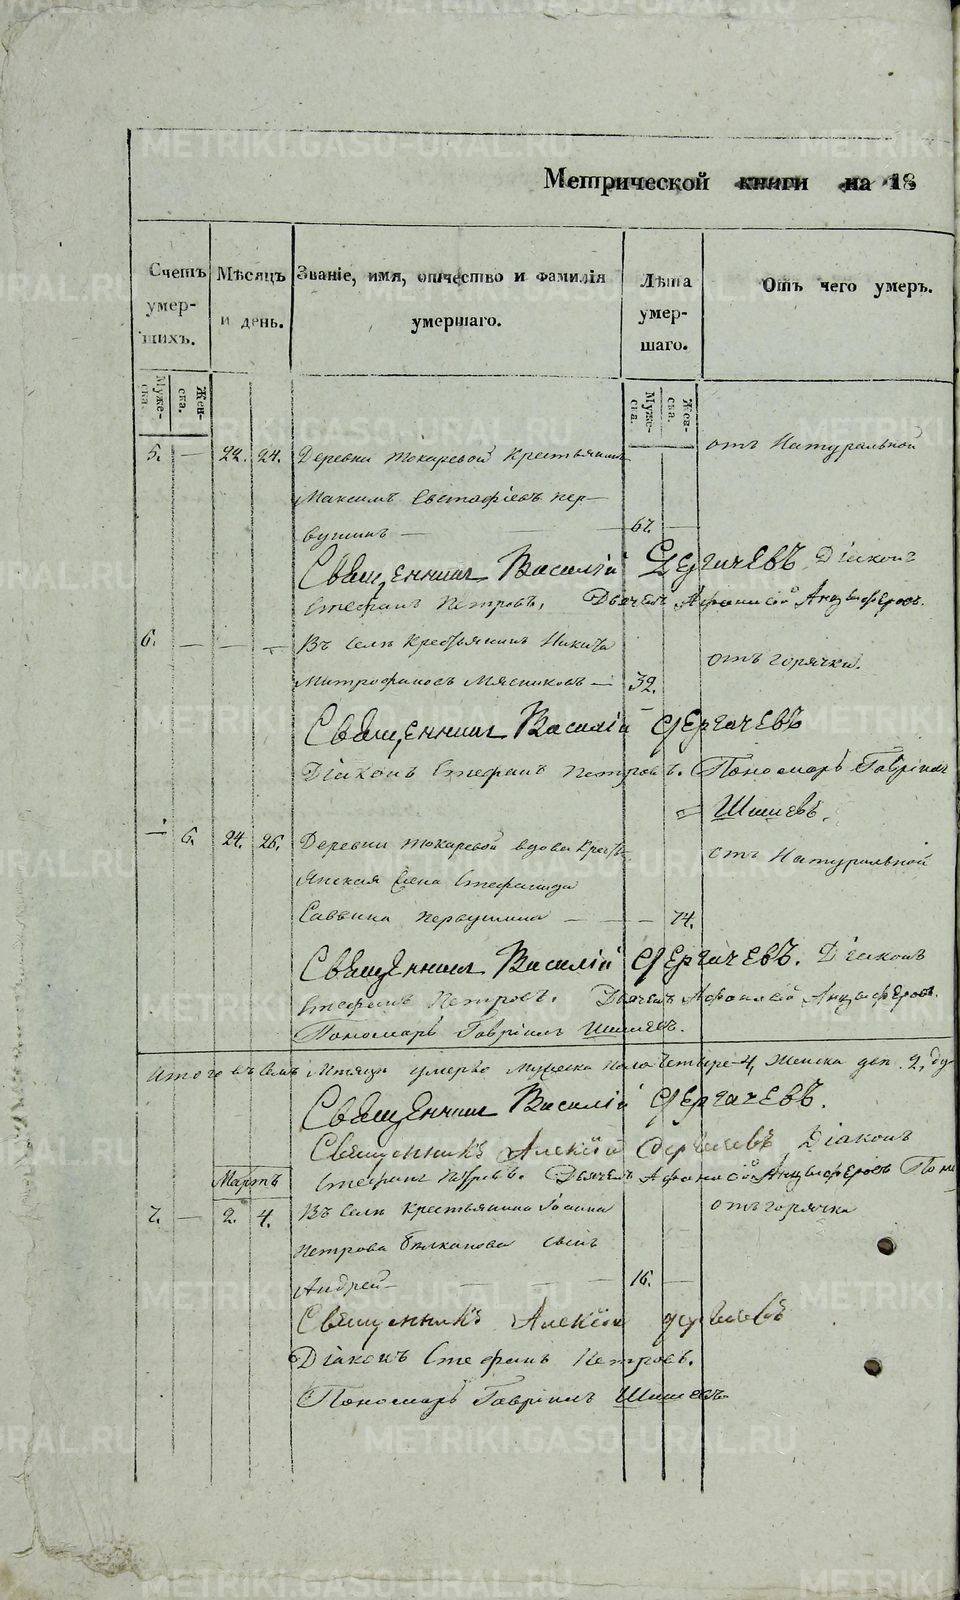 Метрической книги на 18
Счетъ умер- шихъ.
Мѣсяцъ и день.
Званіе, имя, отчество и фамилія умершаго.
Лѣта умер- шаго.
Отъ чего умеръ.
Муже- ска.
Жен- ска.
Муже- ска.
Жен- ска.
5. — 22. 24. Деревни Токаревой Крестьянинъ отъ Натуральной
Максимъ Евстафіевъ Пер-
вушинъ — 67. —
Священникъ Василій Дергачевъ Діаконъ
Стефанъ Петровъ. Дьячекъ Афанасій Анцыферовъ.
6. — — — Въ Селѣ Крестьянинъ Никита отъ горячки.
Митрофановъ Мясниковъ — 32. —
Священникъ Василій Дергачевъ
Діаконъ Стефанъ Петровъ. Пономарь Гавріилъ
= Шишевъ.
— 6. 24. 26. Деревни Токаревой вдова Кресть- отъ Натуральной
янская Стефанида
Саввина Первушина — — — 74.
Священникъ Василій Дергачевъ. Діаконъ
Стефанъ Петровъ. Дьячекъ Афанасій Анцыферовъ.
Пономарь Гавріилъ Шишевъ.
Итого въ семъ Мѣсяцѣ умерло мужеска пола четыре 4, женска 2,
Священникъ Василій Дергачевъ.
Священникъ Алексій Дергачевъ Діаконъ
Мартъ Стефанъ Петровъ. Дьячекъ Афанасій Анцыферовъ Поно
7. — 2. 4. Въ Селѣ Крестьянина Іоанна отъ горячки
Петрова сынъ
Андрей — — — 16. —
Священникъ Алексій Дергачевъ
Діаконъ Стефанъ Петровъ.
Пономарь Гавріилъ Шишевъ
METRIKI.GASO-URAL.RU